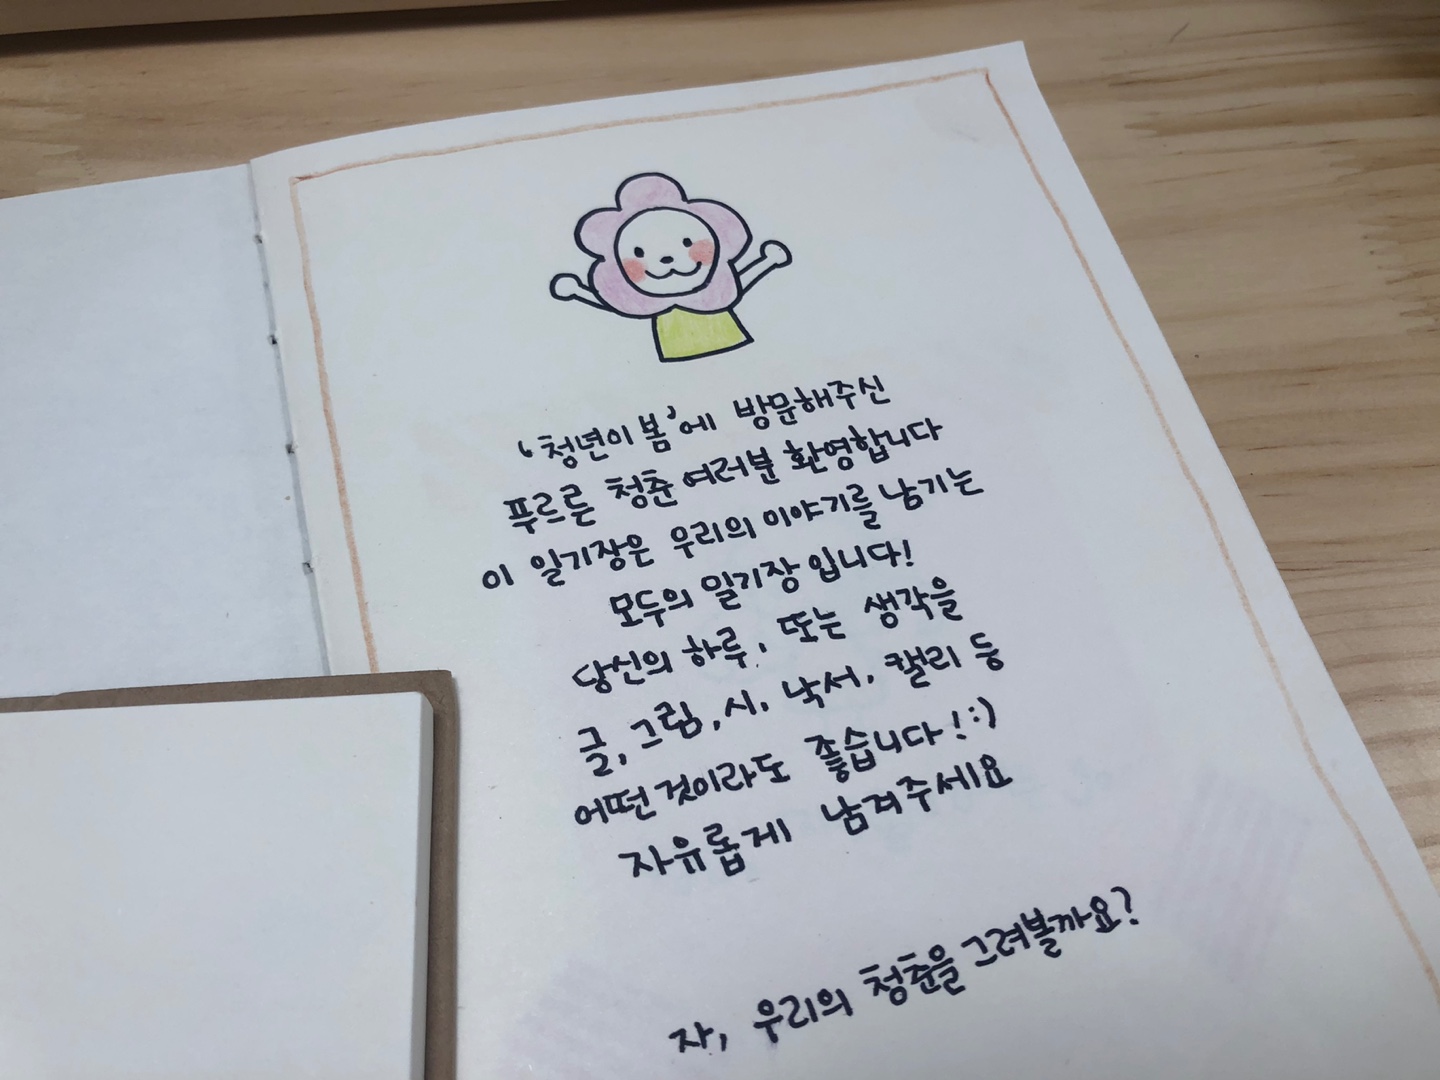 '청년이 봄'에 방문해주신
푸르른 청춘 여러분 환영합니다
이 일기장은 우리의 이야기를 남기는
모두의 일기장 입니다!
당신의 하루, 또는 생각을
글, 그림, 시, 낙서, 캘리 등
어떤 것이라도 좋습니다!:)
자유롭게 남겨주세요
자, 우리의 청춘을 그려볼까요?